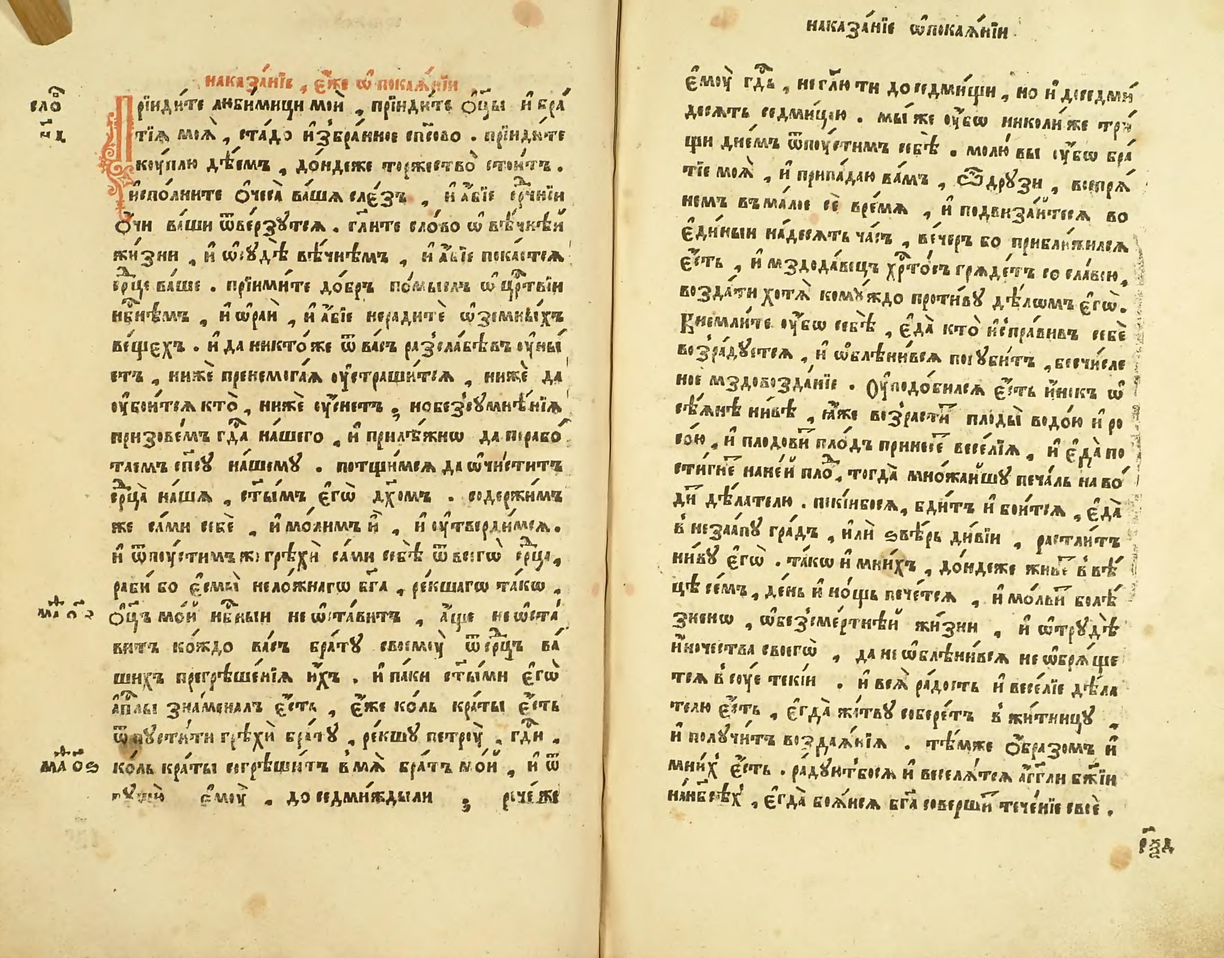 наказа́нїе, є҆́же ѡ҆ покаѧ́нїи
сло́
Прїиди́те люби́мици мои̑, прїиди́те ѻ҆ц҃ы̀ и҆ бра́
тїѧ моѧ̀, ста́до и҆збра́нное сп҃сово. прїиди́те
ко́уплю дѣ́емъ, до́ндеже торжество̀ стои́тъ.
и҆спо́лните ѻ҆чеса̀ ва́шѧ сле́зъ, и҆ а҆́бїе ср҃чнїи
ѻ҆́чи ва́ши ѿве́рзутсѧ. гл҃ите сло́во ѡ҆ вѣ́чнѣй
жи́зни, и҆ ѡ҆ су́дѣ вѣ́чнѣмъ, и҆ а҆́бїе пока́етсѧ
ср҃це ва́ше. прїими́те до́бръ по́мыслъ ѡ҆ ца҃рствїи
нб҃нѣмъ, и҆ ѡ҆ ра́и, и҆ а҆́бїе неради́те ѡ҆ земны́хъ
ве́щехъ. и҆ да никто́же ѿ ва́съ разсла́бѣвъ оу҆ны́
етъ, нижѐ пренемога́ѧ оу҆страши́тсѧ, нижѐ да
оу҆бои́тсѧ кто̀, нижѐ оу҆́снетъ, но без̾оумнѣ́нїѧ
призове́мъ гд҃а на́шего, и҆ прилѣ́жнѡ да порабо́
таемъ сп҃су на́шему. потщи́мсѧ да ѡ҆чи́ститъ
ср҃ца̀ на́шѧ, ст҃ы́мъ є҆гѡ̀ дх҃омъ. содержи́мъ
же са́ми себѐ, и҆ мо́лимъ и҆̀, и҆ оу҆тверди́мсѧ.
и҆ ѿпоу́стимъ жѐ грѣхѝ са́ми себѣ̀ ѿ всегѡ̀ ср҃ца,
раби́ бо є҆смы̀ нело́жнагѡ бг҃а, ре́кшагѡ та́кѡ,
ма́ѳ
ѻ҆ц҃ъ мо́й нб҃ныи не ѡ҆ста́витъ, а҆́ще не ѡ҆ста́
витъ ко́ждо ва́съ бра́ту своемоу̀ ѿ ср҃цъ ва́
шихъ прегрѣше́нїѧ и҆́хъ. и҆ па́ки ст҃ы́ми є҆гѡ̀
а҆пл҃ы зна́меналъ є҆́сть, є҆́же ко́ль кра́ты є҆́сть
ѿпусти́ти грѣхѝ бра́ту, ре́кшу петроу̀, гд҃и,
ма́ѳ ѻ҃ѕ
ко́ль кра́ты согрѣши́тъ в̾ мѧ̀ бра́тъ мо́й, и҆ ѿ
є҆моу̀, до седми́ждыли, рече́ же
наказа́нїе ѡ҆ покаѧ́нїи
є҆моу̀ гд҃ь, не гл҃ю ти до седми́щи, но и҆ до седми́
десѧть седми́цею. мы́ же оу҆́бѡ николи́же три́
щи дне́мъ ѿпоу́стимъ себѣ̀. молю̀ вы оу҆́бѡ бра́
тїе моѧ̀, и҆ припа́даю ва́мъ, ѽ дру́зи, воспрѧ́
немъ въ ма́лое сѐ вре́мѧ, и҆ подвиза́йтесѧ во
є҆ди́ныи на́десѧть ча́съ, ве́черъ бо прибли́жилсѧ
є҆́сть, и҆ мздода́вецъ хр҃то́съ грѧде́тъ со сла́вою,
возда́ти хотѧ̀ комꙋ́ждо проти́ву дѣ́лѡмъ є҆гѡ̀.
Внемли́те оу҆́бѡ себѣ̀, є҆да̀ кто̀ и҆спра́вивъ себѐ
возра́дуетсѧ, и҆ ѡ҆блѣни́всѧ погу́битъ, бесчи́сле
ное мздовозда́нїе. Оу҆подо́билсѧ є҆́сть и҆́нокъ ѡ҆
сѣ́ѧнѣ ни́вѣ, ꙗ҆́же возрасти̑ плоды̀ водо́ю и҆ ро
со́ю, и҆ плодови̑ пло́дъ принесѐ весе́лїѧ, и҆ є҆да̀ по
сти́гне на не́й пло́д, тогда̀ мно́жайшу печа́ль наво́
ди̑ дѣ́лателю. поки́нвосѧ, бди́тъ и҆ бои́тсѧ, є҆да̀
в̾незаа́пу гра́дъ, и҆лѝ ѕвѣ́рь ди́вїи, растли́тъ
ни́ву є҆гѡ̀. та́кѡ и҆ мни́хъ, до́ндеже жи́ве в̾ вѣ́
цѣ се́мъ, де́нь и҆ но́щь пече́тсѧ, и҆ мо́льби болѣ́
зненѡ, ѡ҆ без̾сме́ртнѣй жи́зни, и҆ ѡ҆ тру́дѣ
и҆́ночества своегѡ̀, да не ѡ҆блѣни́всѧ не ѡ҆брѧ́ще
тсѧ в̾ со́уе теки́й. и҆ всѧ̀ ра́дость и҆ весе́лїе дѣ́ла
телю є҆́сть, є҆гда̀ жа́тву собере́тъ в̾ жи́тницу,
и҆ полу́читъ воздаѧ́нїѧ. тѣ́мже ѻ҆́бразомъ и҆
мни́х є҆́сть. ра́дуют̾босѧ и҆ веселѧ́тсѧ а҆́гг҃ли бж҃їи
на нб҃сѣ́х, є҆гда̀ боѧ́йсѧ бг҃а соверши̑ тече́нїе своѐ.